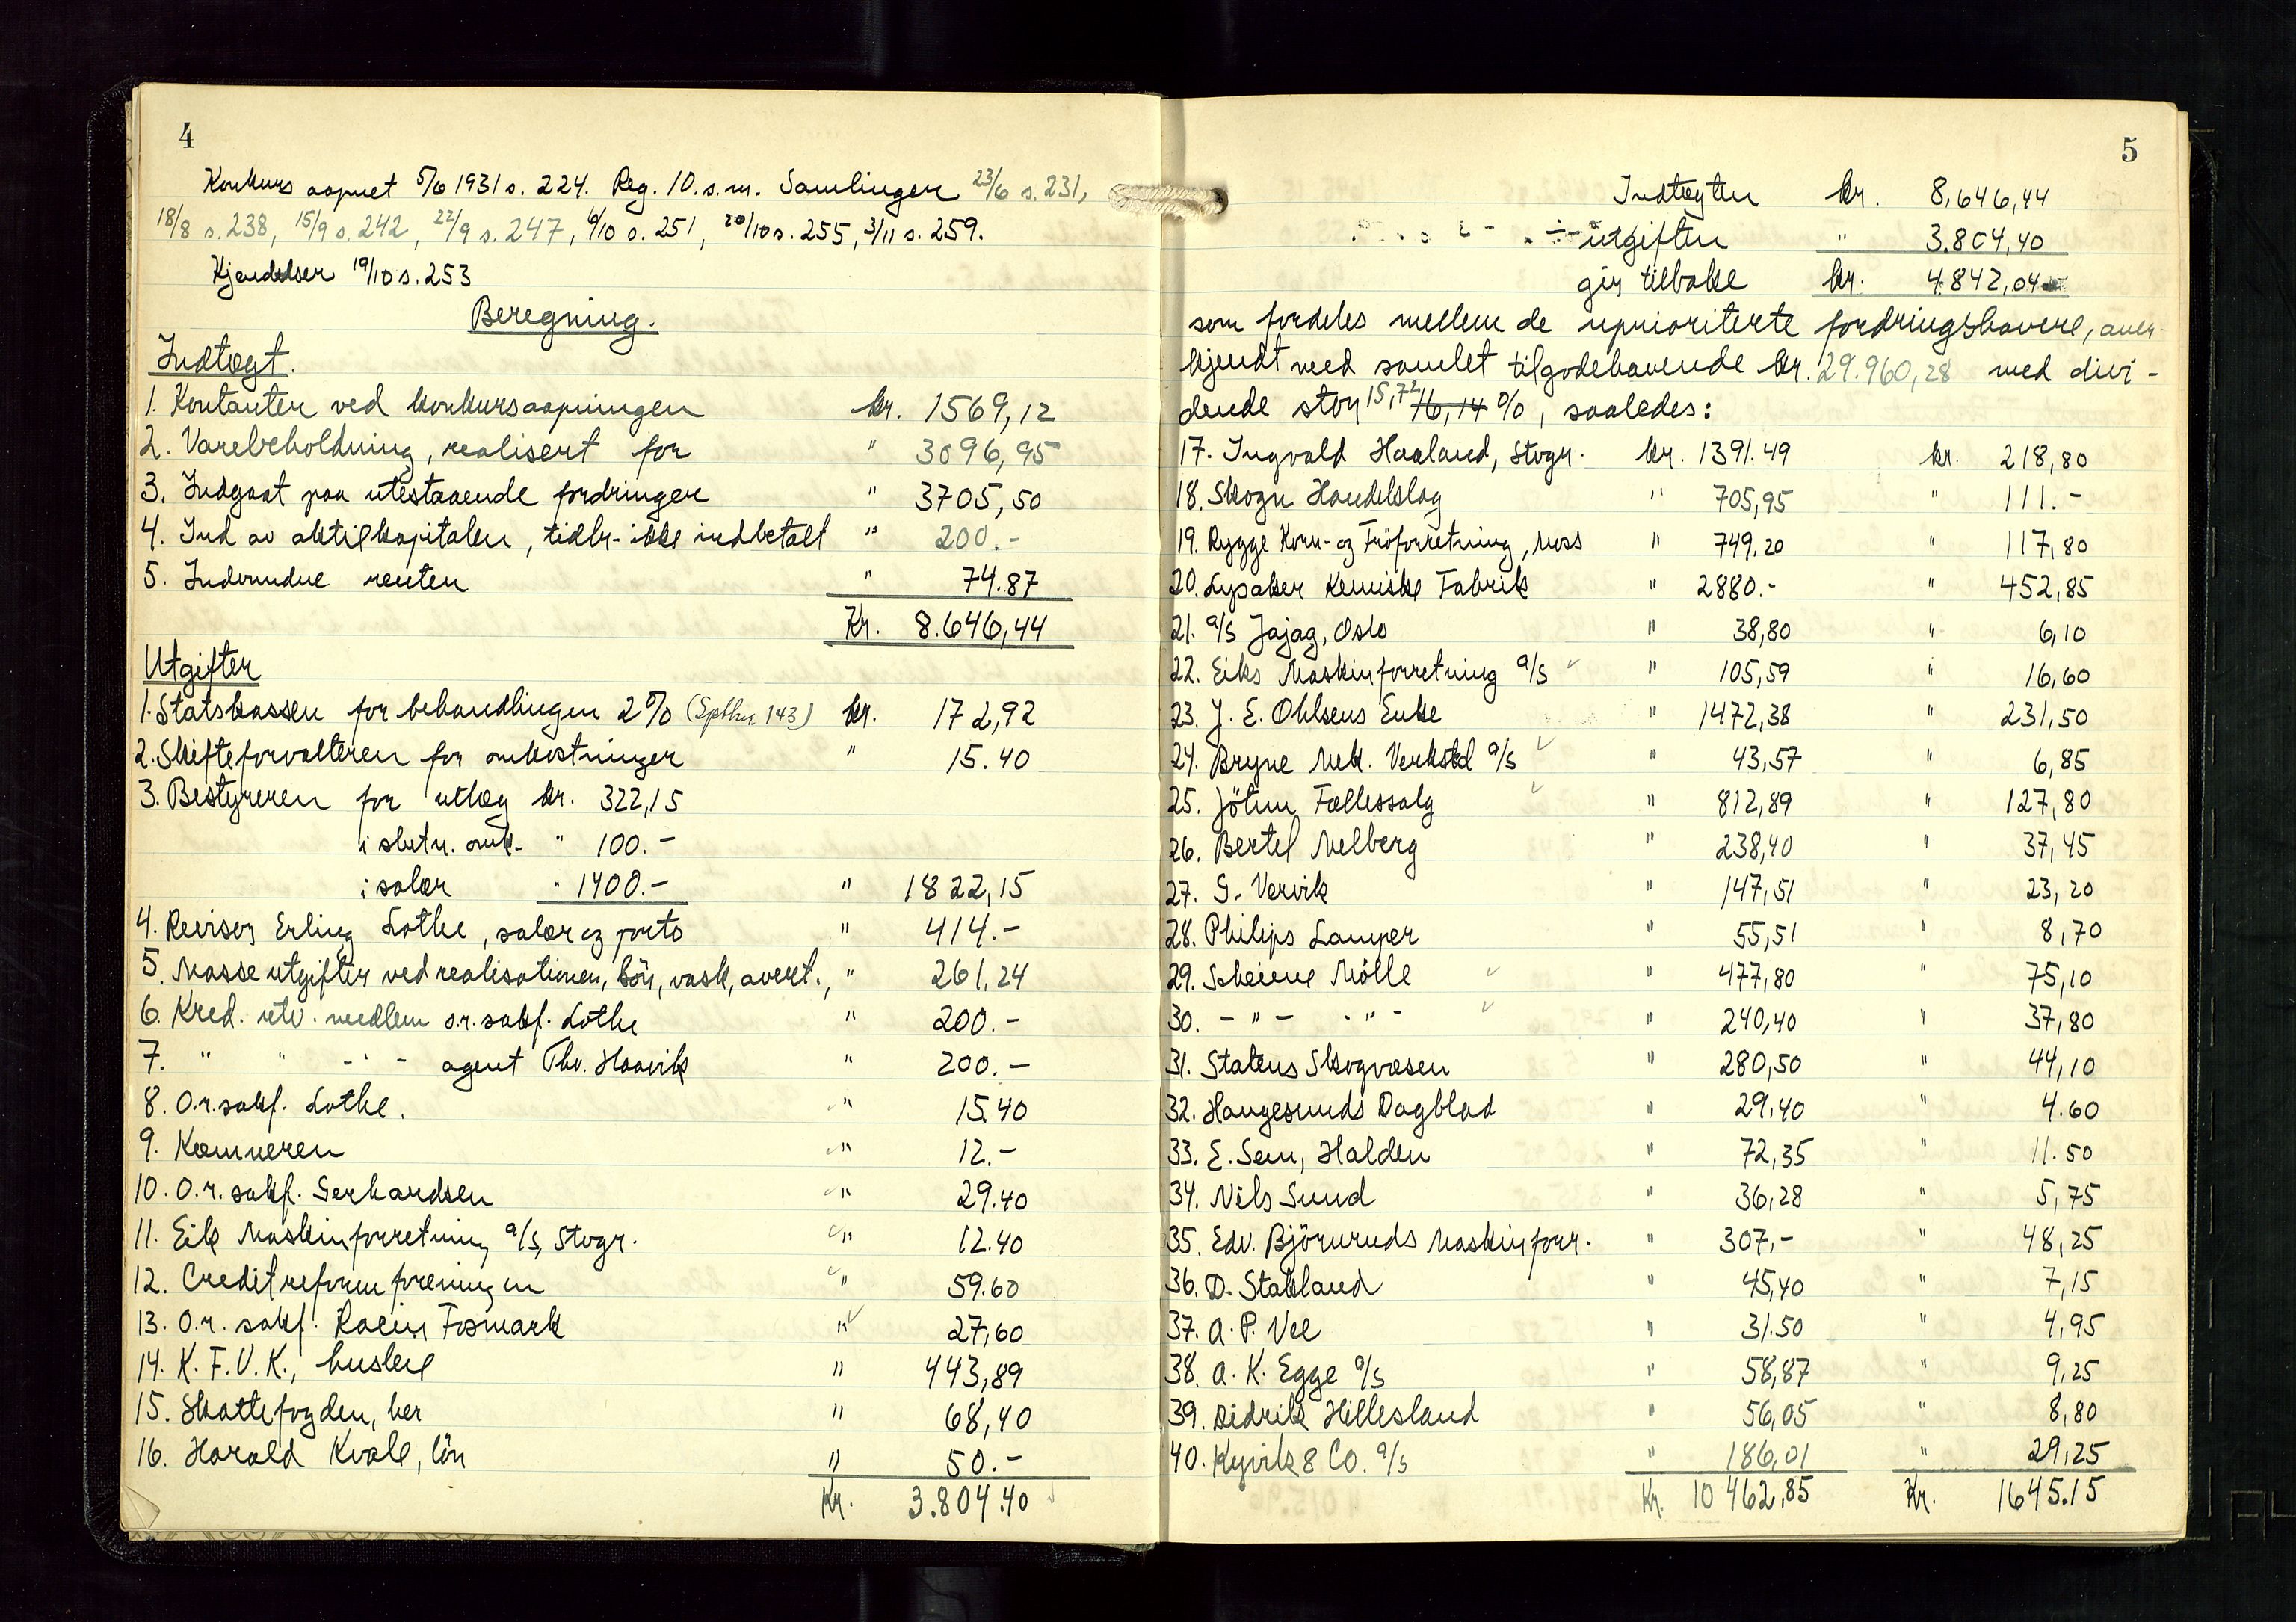 4
Konkurs aapnet 5/6 1931 s. 224. Reg. 10. s. m. Samlinger 23/6 s. 231,
18/8 s. 238, 15/9 s. 242, 22/9 s. 247, 6/10 s. 251, 20/10 s. 255, 3/11 s. 259.
Kjendelser 19/10 s. 253
Beregning.
Indtægt.
1. Kontanter ved konkursaapningen kr. 1569,12
2. Varebeholdning, realisert for " 3096,95
3. Indgaat paa utestaaende fordringer " 3705,50
4. Ind av aktiekapitalen, tidlr. ikke indbetalt " 200.-
5. Indvundne renter " 74.87
Kr. 8.646,44
Utgifter
1. Statskassen for behandlingen 2% (Sptlov 143) kr. 172,92
2. Skifteforvalteren for omkostninger " 15.40
3. Bestyreren for utlæg kr. 322,15
i slutn. omk. " 100.-
i salær " 1400.- " 1822,15
4. Revisor Erling Lothe, salær og porto " 414.-
5. Masseutgifter ved realisationen, lön, vask, avert., " 261.24
6. Kred. utv. medlem o.r.sakf. Lothe " 200.-
7. " " - " - agent Thv. Haavik " 200.-
8. O.r.sakf. Lothe. " 15.40
9. Kæmneren " 12.-
10. O.r. sakf. Gerhardsen " 29.40
11. Eik Maskinforretning a/s, Stvgr. " 12.40
12. Creditreformforeningen " 59.60
13. O.r. sakf. Fosmark " 27,60
14. K. F. U. K., husleie " 443,89
15. Skattefogden, her " 68,40
16. Harald Kvale, lön " 50.-
Kr. 3.804.40
5
Indtægter kr. 8,646,44
÷ utgifter " 3.804,40
gir tilbake kr. 4.842,04
som fordeles mellem de uprioriterte fordringshavere, aner-
kjendt med samlet tilgodehavende kr. 29.960,28 med divi-
dende stor 15,72 16,14 %, saaledes:
17. Ingvald Haaland, Stvgr. kr. 1391.49 kr. 218,80
18. Skogn Handelslag " 705,95 " 111.-
19. Rygge Korn- og Fröforretning, Moss " 749.20 " 117,80
20. Lysaker Kemiske Fabrik " 2880.- " 452,85
21. a/s Jajag, Oslo " 38,80 " 6,10
22. Eiks Maskinforretning a/s " 105,59 " 16,60
23. J. E. Ohlsens Enke " 1472,38 " 231,50
24. Bryne Mek. Verksted a/s " 43,57 " 6,85
25. Jötun Fællessalg " 812,89 " 127,80
26. Bertel Melberg " 238,40 " 37,45
27. G. Vervik " 147,51 " 23,20
28. Philips Lamper " 55,51 " 8,70
29. Scheiene Mölle " 477,80 " 75,10
30. - " - - " - " 240,40 " 37,80
31. Statens Skogvæsen " 280,50 " 44,10
32. Haugesunds Dagblad " 29,40 " 4.60
33. E. Sem, Halden " 72,35 " 11.50
34. Nils Sund " 36,28 " 5,75
35. Edv. Björnruds Maskinforr. " 307,- " 48,25
36. D. Stakland " 45,40 " 7,15
37. A. P. Vee " 31.50 " 4,95
38. A. K. Egge a/s " 58,87 " 9,25
39. Didrik Hillesland " 56,05 " 8,80
40. Kyvik & Co. a/s " 186,01 " 29,25
Kr. 10462,85 Kr. 1645.15